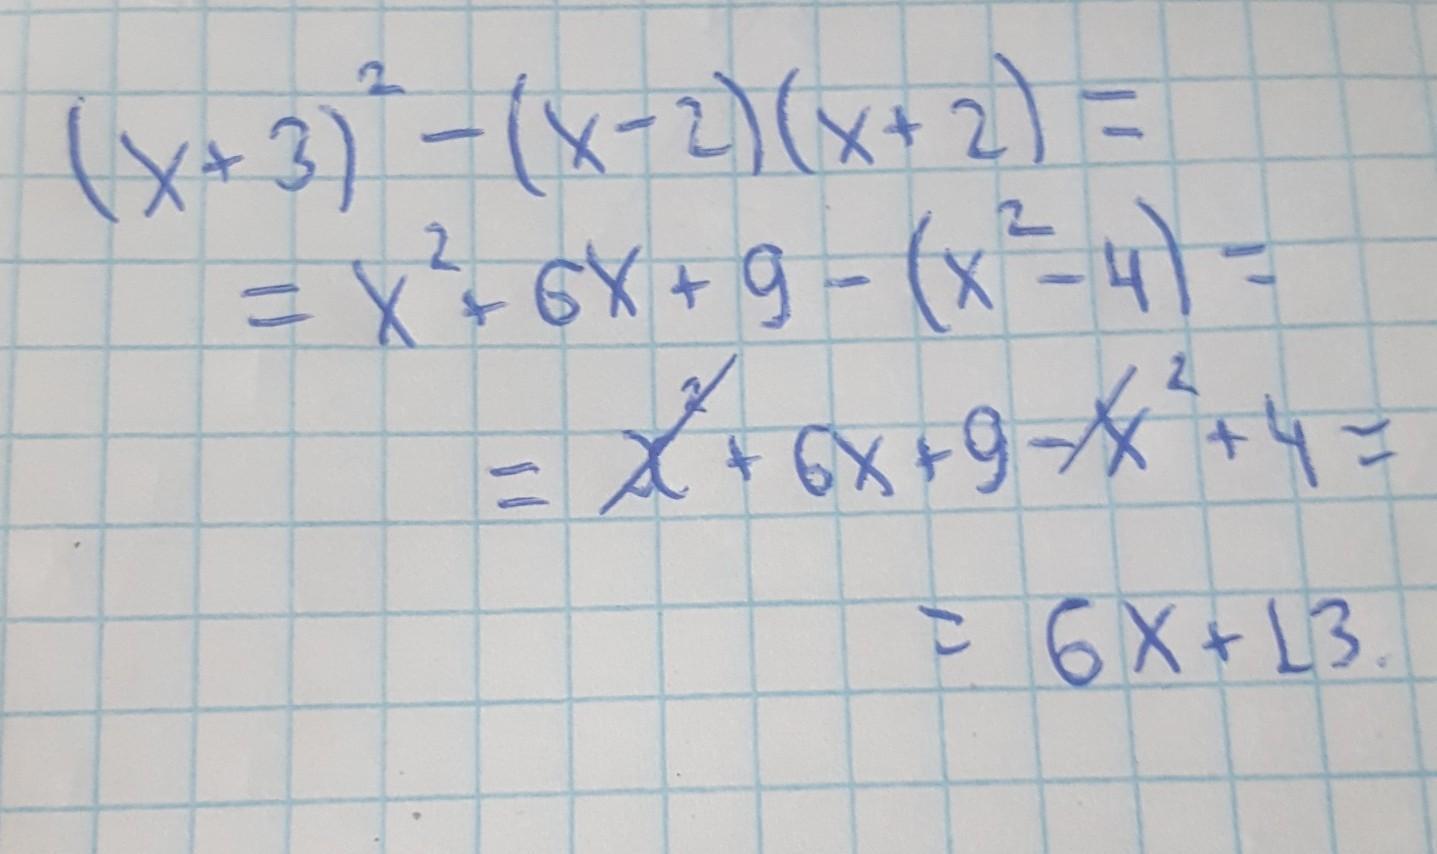 (x+3)² -(x-2)(x+2) =
= x² + 6x + 9 - (x² - 4) =
= x² + 6x + 9 - x² + 4 =
= 6x + 13.